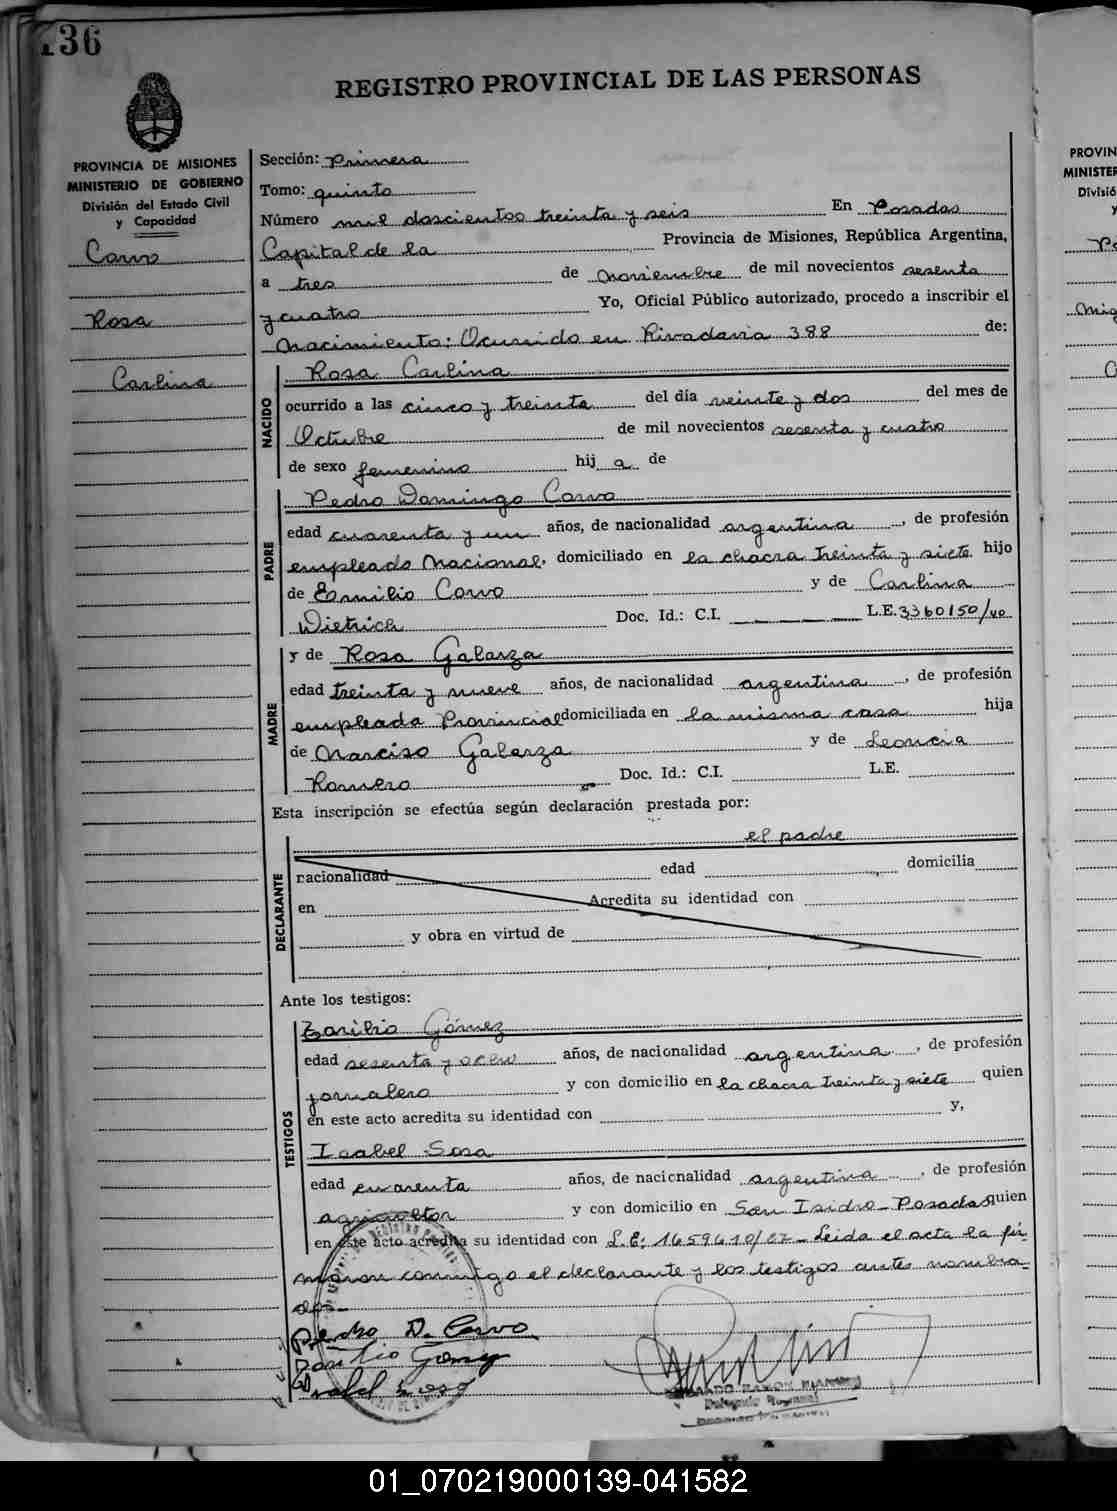 136
REGISTRO PROVINCIAL DE LAS PERSONAS
PROVINCIA DE MISIONES
MINISTERIO DE GOBIERNO
División del Estado Civil
y Capacidad
Corvo
Rosa
Carlina
Sección: Primera
Tomo: quinto
Número mil doscientos treinta y seis En Posadas
Capital de la Provincia de Misiones, República Argentina,
a tres de noviembre de mil novecientos sesenta
y cuatro Yo, Oficial Público autorizado, procedo a inscribir el
nacimiento: Ocurrido en Rivadavia 388 de:
NACIDO
Rosa Carlina
ocurrido a las cinco y treinta del día veinte y dos del mes de
Octubre de mil novecientos sesenta y cuatro
de sexo femenino hij a de
PADRE
Pedro Domingo Corvo
edad cuarenta y un años, de nacionalidad argentina, de profesión
empleado Nacional, domiciliado en la chacra treinta y siete hijo
de Emilio Corvo y de Carlina
Dietrich Doc. Id.: C.I. L.E. 3360150/40
MADRE
y de Rosa Galarza
edad treinta y nueve años, de nacionalidad argentina, de profesión
empleada Provincial domiciliada en la misma casa hija
de Narciso Galarza y de Leoncia
Romero Doc. Id.: C.I. L.E.
Esta inscripción se efectúa según declaración prestada por:
DECLARANTE
el padre
nacionalidad edad domicilia
en Acredita su identidad con
y obra en virtud de
Ante los testigos:
TESTIGOS
Basilio Gómez
edad sesenta y ocho años, de nacionalidad argentina, de profesión
jornalero y con domicilio en la chacra treinta y siete quien
en este acto acredita su identidad con y,
Isabel Sosa
edad cuarenta años, de nacionalidad argentina, de profesión
agricultor y con domicilio en San Isidro - Posadas quien
en este acto acredita su identidad con L.E; 1659610/ - Leida el acta la fir-
maron conmigo el declarante y los testigos antes nombra-
dos -
Pedro D. Corvo
Basilio Gomez
Isabel Sosa
RAMON
Delegado
PROVIN
MINISTER
Divisió
y
01_070219000139-041582